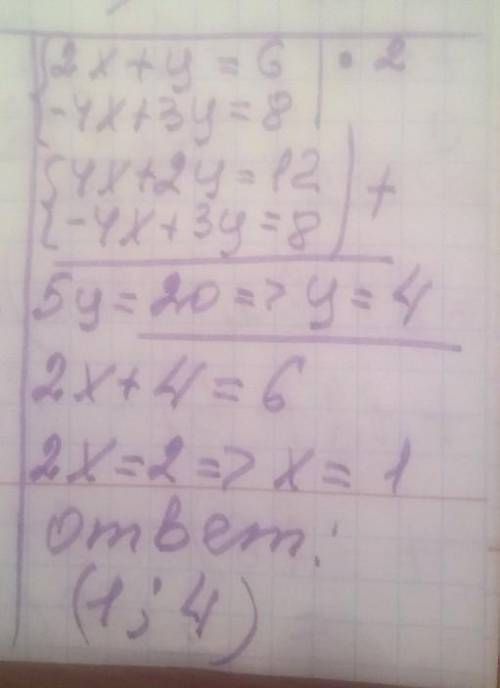 {2x+y=6 | • 2
{-4x+3y=8
{4x+2y=12 | +
{-4x+3y=8
5y=20=>y=4
2x+4=6
2x=2=>x=1
ответ:
(1;4)